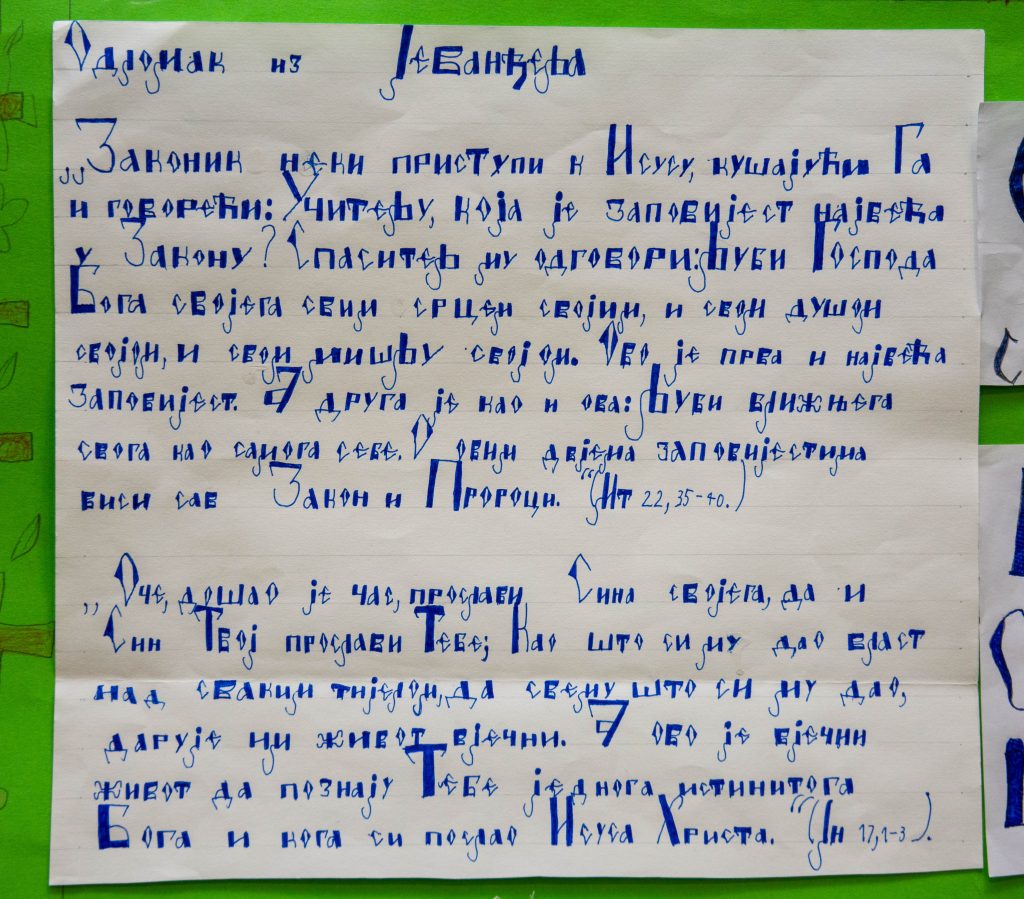 Одломак из Јеванђеља
„Законик неки приступи к Исусу, кушајући Га
и говорећи: Учитељу, која је заповијест највећа
у Закону? Спаситељ му одговори: Љуби Господа
Бога својега свим срцем својим, и свом душом
својом, и свом мишљу својом. Ово је прва и највећа
заповијест. А друга је као и ова: Љуби ближњега
свога као самога себе. О овим двјема заповијестима
виси сав Закон и Пророци.“ (Мт 22, 35-40.)
„Оче, дошао је час, прослави Сина својега, да и
Син Твој прослави Тебе; Као што си му дао власт
над сваким тијелом, да свему што си му дао,
дарује им живот вјечни. А ово је вјечни
живот да познају Тебе једнога истинитога
Бога и кога си послао Исуса Христа.“ (Јн 17,1-3).